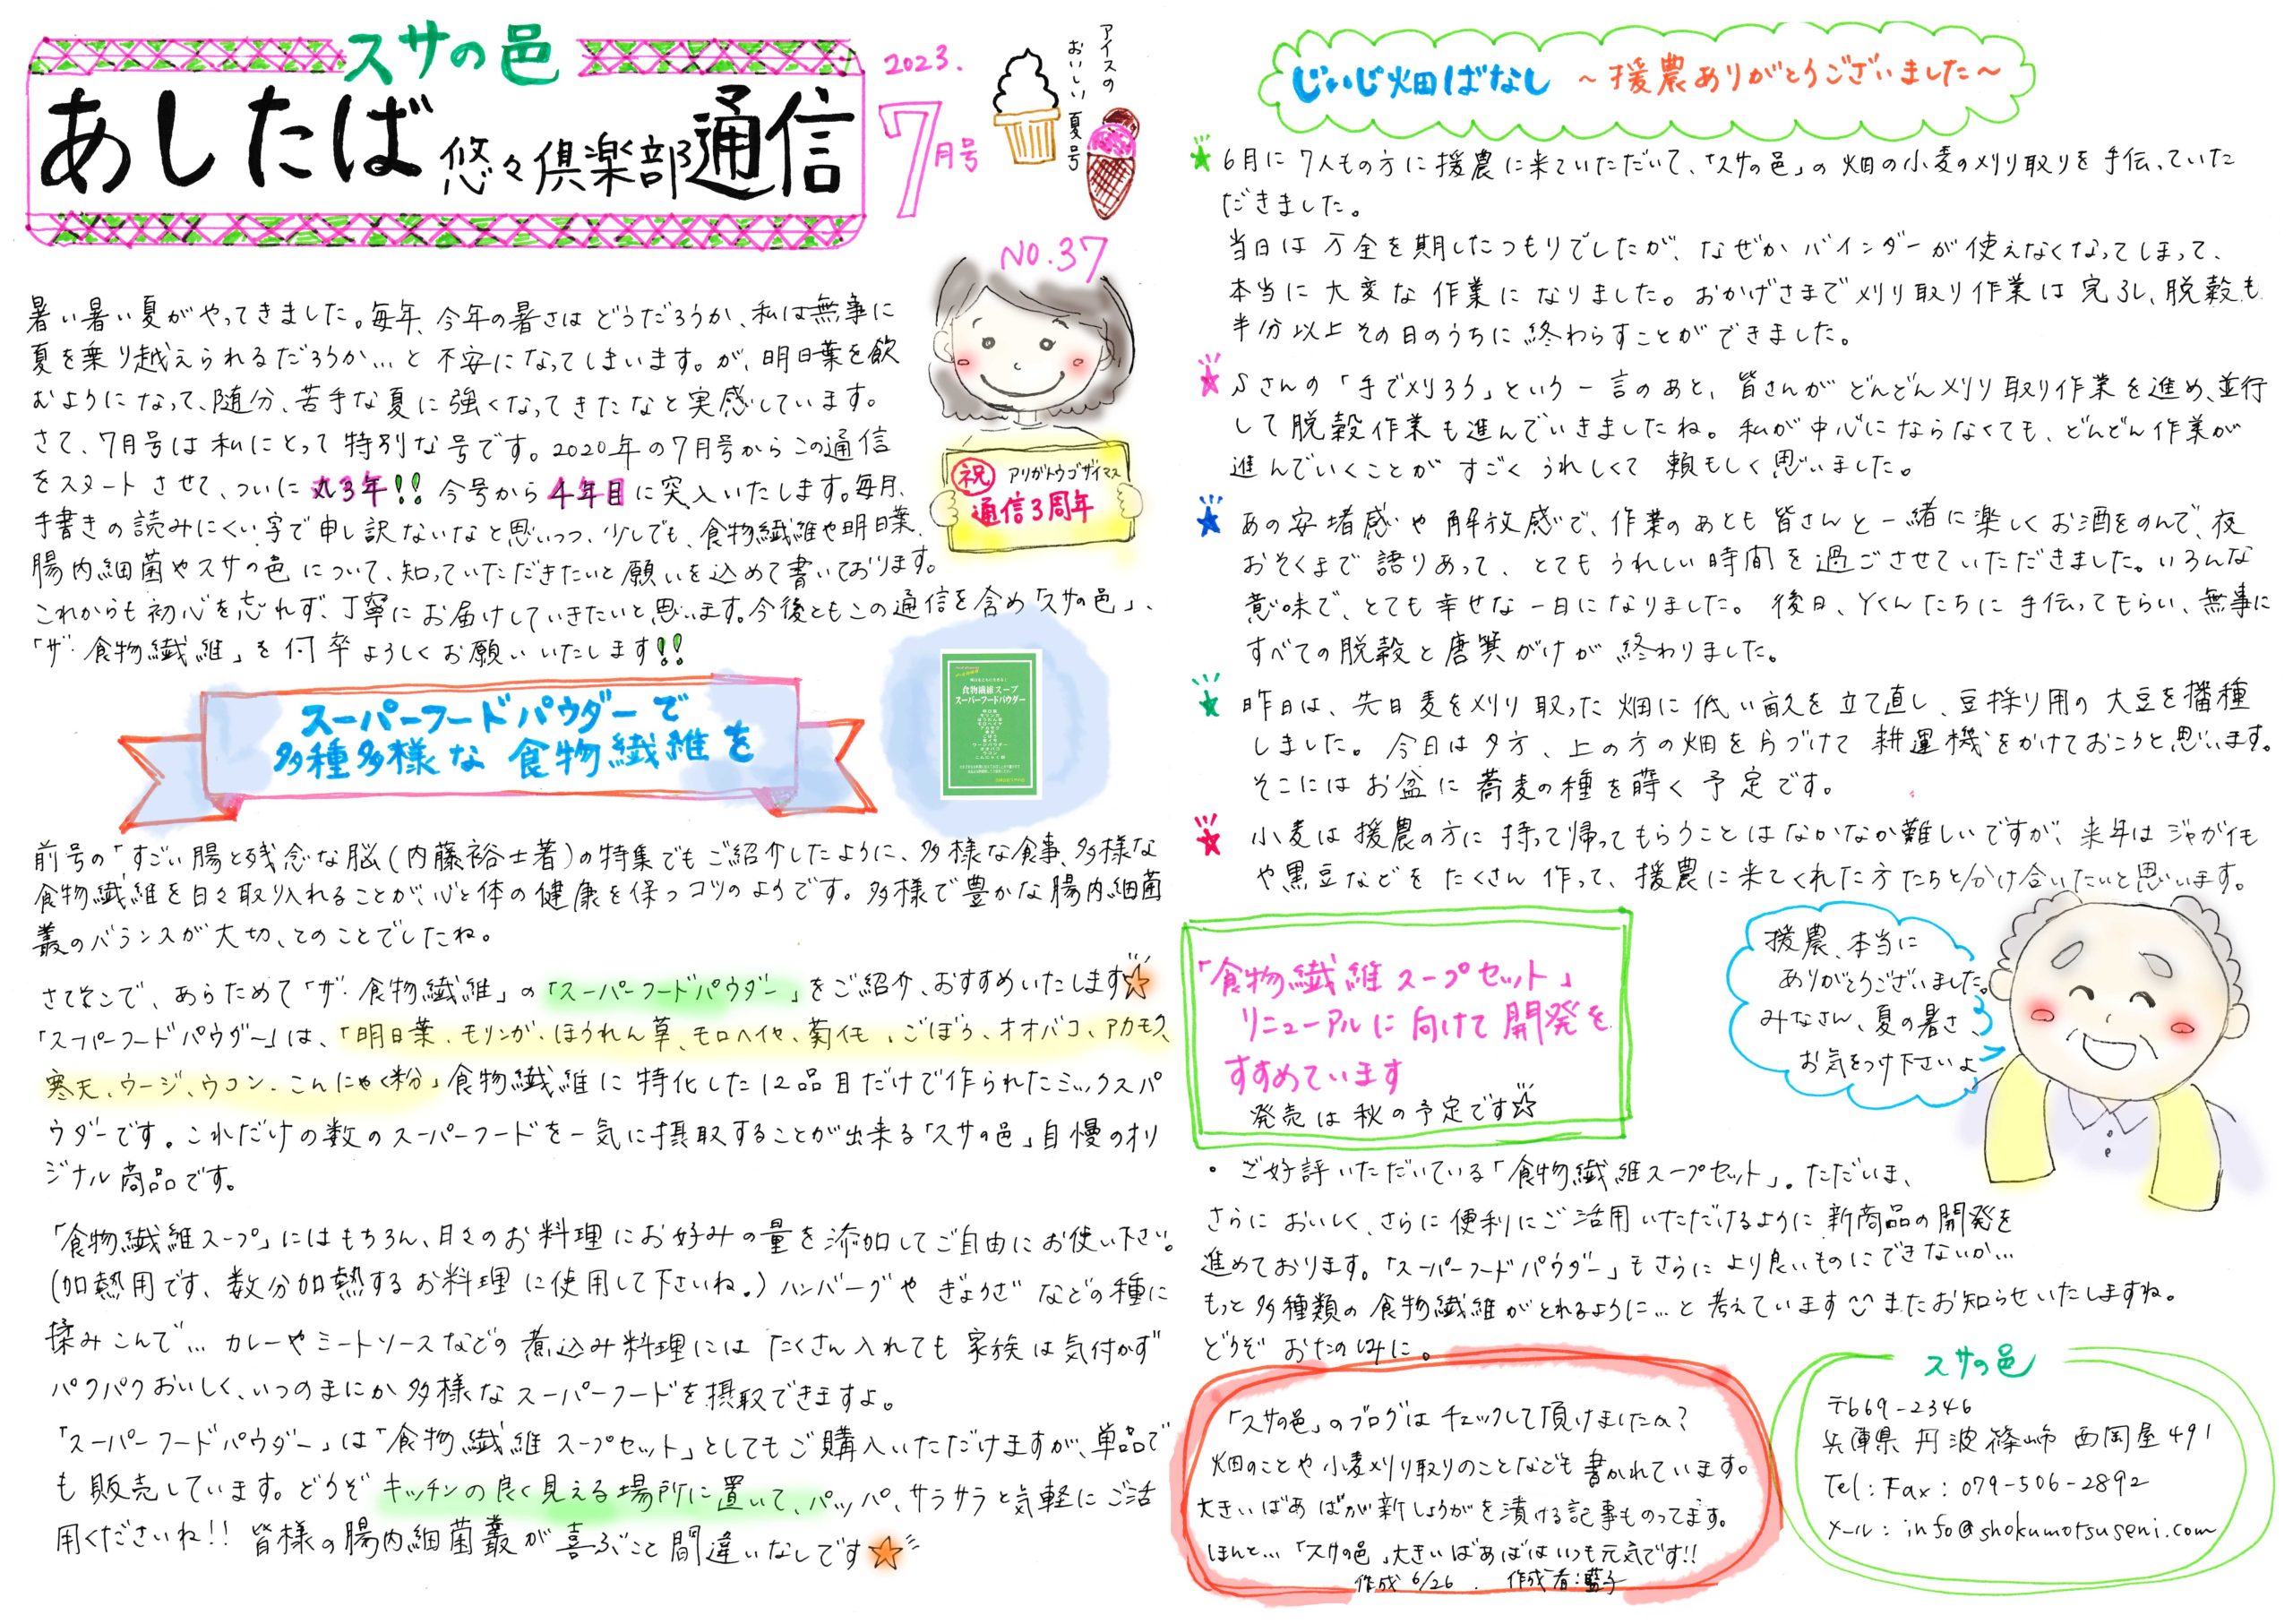 スサの邑
あしたば悠々倶楽部通信
2023.
7月号
アイスの
おいしい夏号
NO.37
暑い暑い夏がやってきました。毎年、今年の暑さはどうだろうか、私は無事に
夏を乗り越えられるだろうか…と不安になってしまいます。が、明日葉を飲
むようになって、随分、苦手な夏に強くなってきたなと実感しています。
さて、7月号は私にとって特別な号です。2020年の7月号からこの通信
をスタートさせて、ついに丸3年!! 今号から4年目に突入いたします。毎月、
手書きの読みにくい字で申し訳ないなと思いつつ、少しでも、食物繊維や明日葉、
腸内細菌やスサの邑について、知っていただきたいと願いを込めて書いております。
これからも初心を忘れず、丁寧にお届けしていきたいと思います。今後ともこの通信を含め「スサの邑」、
「ザ・食物繊維」を何卒よろしくお願いいたします!!
祝 アリガトウゴザイマス
通信3周年
スーパーフードパウダーで
多種多様な食物繊維を
食物繊維スープ
スーパーフードパウダー
前号の「すごい腸と残念な脳(内藤裕士著)の特集でもご紹介したように、多様な食事、多様な
食物繊維を日々取り入れることが、心と体の健康を保つコツのようです。多様で豊かな腸内細菌
叢のバランスが大切、とのことでしたね。
さてそこで、あらためて「ザ・食物繊維」の「スーパーフードパウダー」をご紹介、おすすめいたします☆
「スーパーフードパウダー」は、「明日葉、モリンガ、ほうれん草、モロヘイヤ、菊イモ、ごぼう、オオバコ、アカモク、
寒天、ウージ、ウコン、こんにゃく粉」食物繊維に特化した12品目だけで作られたミックスパ
ウダーです。これだけの数のスーパーフードを一気に摂取することが出来る「スサの邑」自慢のオリ
ジナル商品です。
「食物繊維スープ」にはもちろん、日々のお料理にお好みの量を添加してご自由にお使い下さい。
(加熱用です、数分加熱するお料理に使用して下さいね。)ハンバーグやぎょうざなどの種に
揉みこんで…カレーやミートソースなどの煮込み料理にはたくさん入れても家族は気付かず
パクパクおいしく、いつのまにか多様なスーパーフードを摂取できますよ。
「スーパーフードパウダー」は「食物繊維スープセット」としてもご購入いただけますが、単品で
も販売しています。どうぞキッチンの良く見える場所に置いて、パッパ、サラサラと気軽にご活
用くださいね!! 皆様の腸内細菌叢が喜ぶこと間違いなしです☆
じぃじ畑ばなし ～援農ありがとうございました～
★6月に7人もの方に援農に来ていただいて、「スサの邑」の畑の小麦の刈り取りを手伝っていた
だきました。
当日は万全を期したつもりでしたが、なぜかバインダーが使えなくなってしまって、
本当に大変な作業になりました。おかげさまで刈り取り作業は完了し、脱穀も
半分以上その日のうちに終わらすことができました。
★Sさんの「手で刈ろう」という一言のあと、皆さんがどんどん刈り取り作業を進め、並行
して脱穀作業も進んでいきましたね。私が中心にならなくても、どんどん作業が
進んでいくことがすごくうれしくて頼もしく思いました。
★あの安堵感や解放感で、作業のあとも皆さんと一緒に楽しくお酒をのんで、夜
おそくまで語りあって、とてもうれしい時間を過ごさせていただきました。いろんな
意味で、とても幸せな一日になりました。後日、Yくんたちに手伝ってもらい、無事に
すべての脱穀と唐箕がけが終わりました。
★昨日は、先日麦を刈り取った畑に低い畝を立て直し、豆採り用の大豆を播種
しました。今日は夕方、上の方の畑を片づけて耕運機をかけておこうと思います。
そこにはお盆に蕎麦の種を蒔く予定です。
★小麦は援農の方に持って帰ってもらうことはなかなか難しいですが、来年はジャガイモ
や黒豆などをたくさん作って、援農に来てくれた方たちと分け合いたいと思います。
「食物繊維スープセット」
リニューアルに向けて開発を
すすめています
発売は秋の予定です☆
援農、本当に
ありがとうございました。
みなさん、夏の暑さ、
お気をつけ下さいよ
・ご好評いただいている「食物繊維スープセット」。ただいま、
さらにおいしく、さらに便利にご活用いただけるように新商品の開発を
進めております。「スーパーフードパウダー」もさらにより良いものにできないか…
もっと多種類の食物繊維がとれるように…と考えていますまたお知らせいたしますね。
どうぞおたのしみに。
「スサの邑」のブログはチェックして頂けましたか?
畑のことや小麦刈り取りのことなども書かれています。
大きいばあばが新しょうがを漬ける記事ものってます。
ほんと…「スサの邑」大きいばあばはいつも元気です!!
作成 6/26. 作成者:藍子
スサの邑
〒669-2346
兵庫県丹波篠山市西岡屋491
Tel:Fax:079-506-2892
メール:info@shokumotsuseni.com